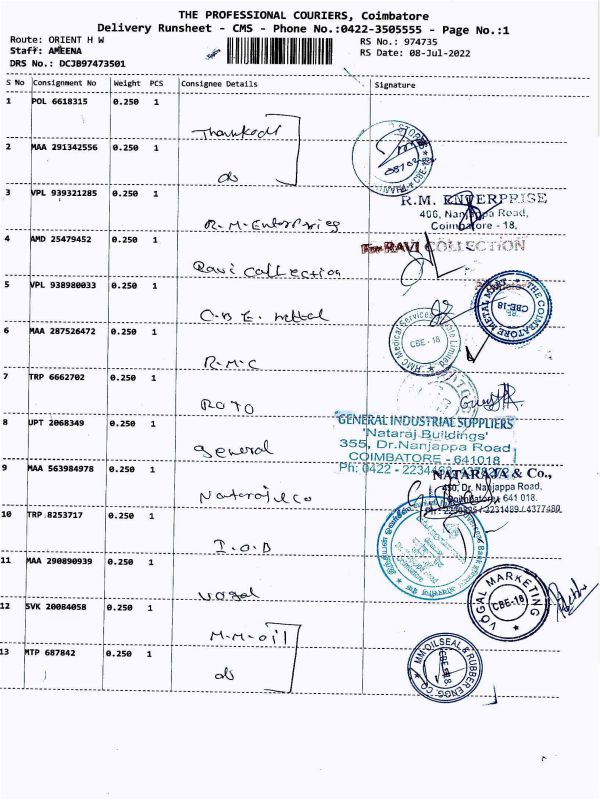 THE PROFESSIONAL COURIERS, Coimbatore
Delivery Runsheet - CMS - Phone No.:0422-3505555 - Page No.:1
Route: ORIENT H W
Staff: AMEENA
DRS No.: DCJB97473501
RS No.: 974735
RS Date: 08-Jul-2022
S No Consignment No Weight PCS Consignee Details Signature
1 POL 6618315 0.250 1
2 MAA 291342556 0.250 1 do
3 VPL 939321285 0.250 1 R.M.Enterprises
R.M. ENTERPRISE
406, Nanjappa Road,
Coimbatore - 18.
4 AMD 25479452 0.250 1 Ravi Collection
For RAVI COLLECTION
5 VPL 938980033 0.250 1 C.B.E. Mettal
THE COIMBATORE METAL MART
CBE-18
6 MAA 287526472 0.250 1 R.M.C
HMC Medical Services Limited
CBE - 18
7 TRP 6662702 0.250 1 ROTO
8 UPT 2068349 0.250 1 General
GENERAL INDUSTRIAL SUPPLIERS
'Nataraj Buildings'
355, Dr.Nanjappa Road
COIMBATORE - 641018
Ph: 0422 -
9 MAA 563984978 0.250 1 Nataraj & Co
NATARAJA & Co.,
430, Dr. Nanjappa Road,
Coimbatore - 641 018.
10 TRP 8253717 0.250 1 I.O.B
11 MAA 290890939 0.250 1 Vogal
VOGAL MARKETING
CBE-18
12 SVK 20084058 0.250 1 M.M.oil
13 MTP 687842 0.250 1 do
MM OILSEAL & RUBBER ENGG. CO
CBE-18